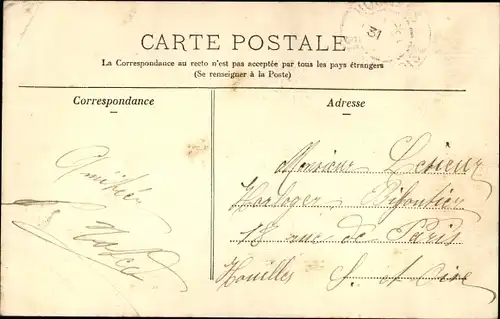 CARTE POSTALE
La Correspondance au recto n'est pas acceptée par tous les pays étrangers
(Se renseigner à la Poste)
Correspondance
Adresse
Monsieur Lesieur
Horloger Bijoutier
18 rue de Paris
Houilles S. et Oise
Amitiés